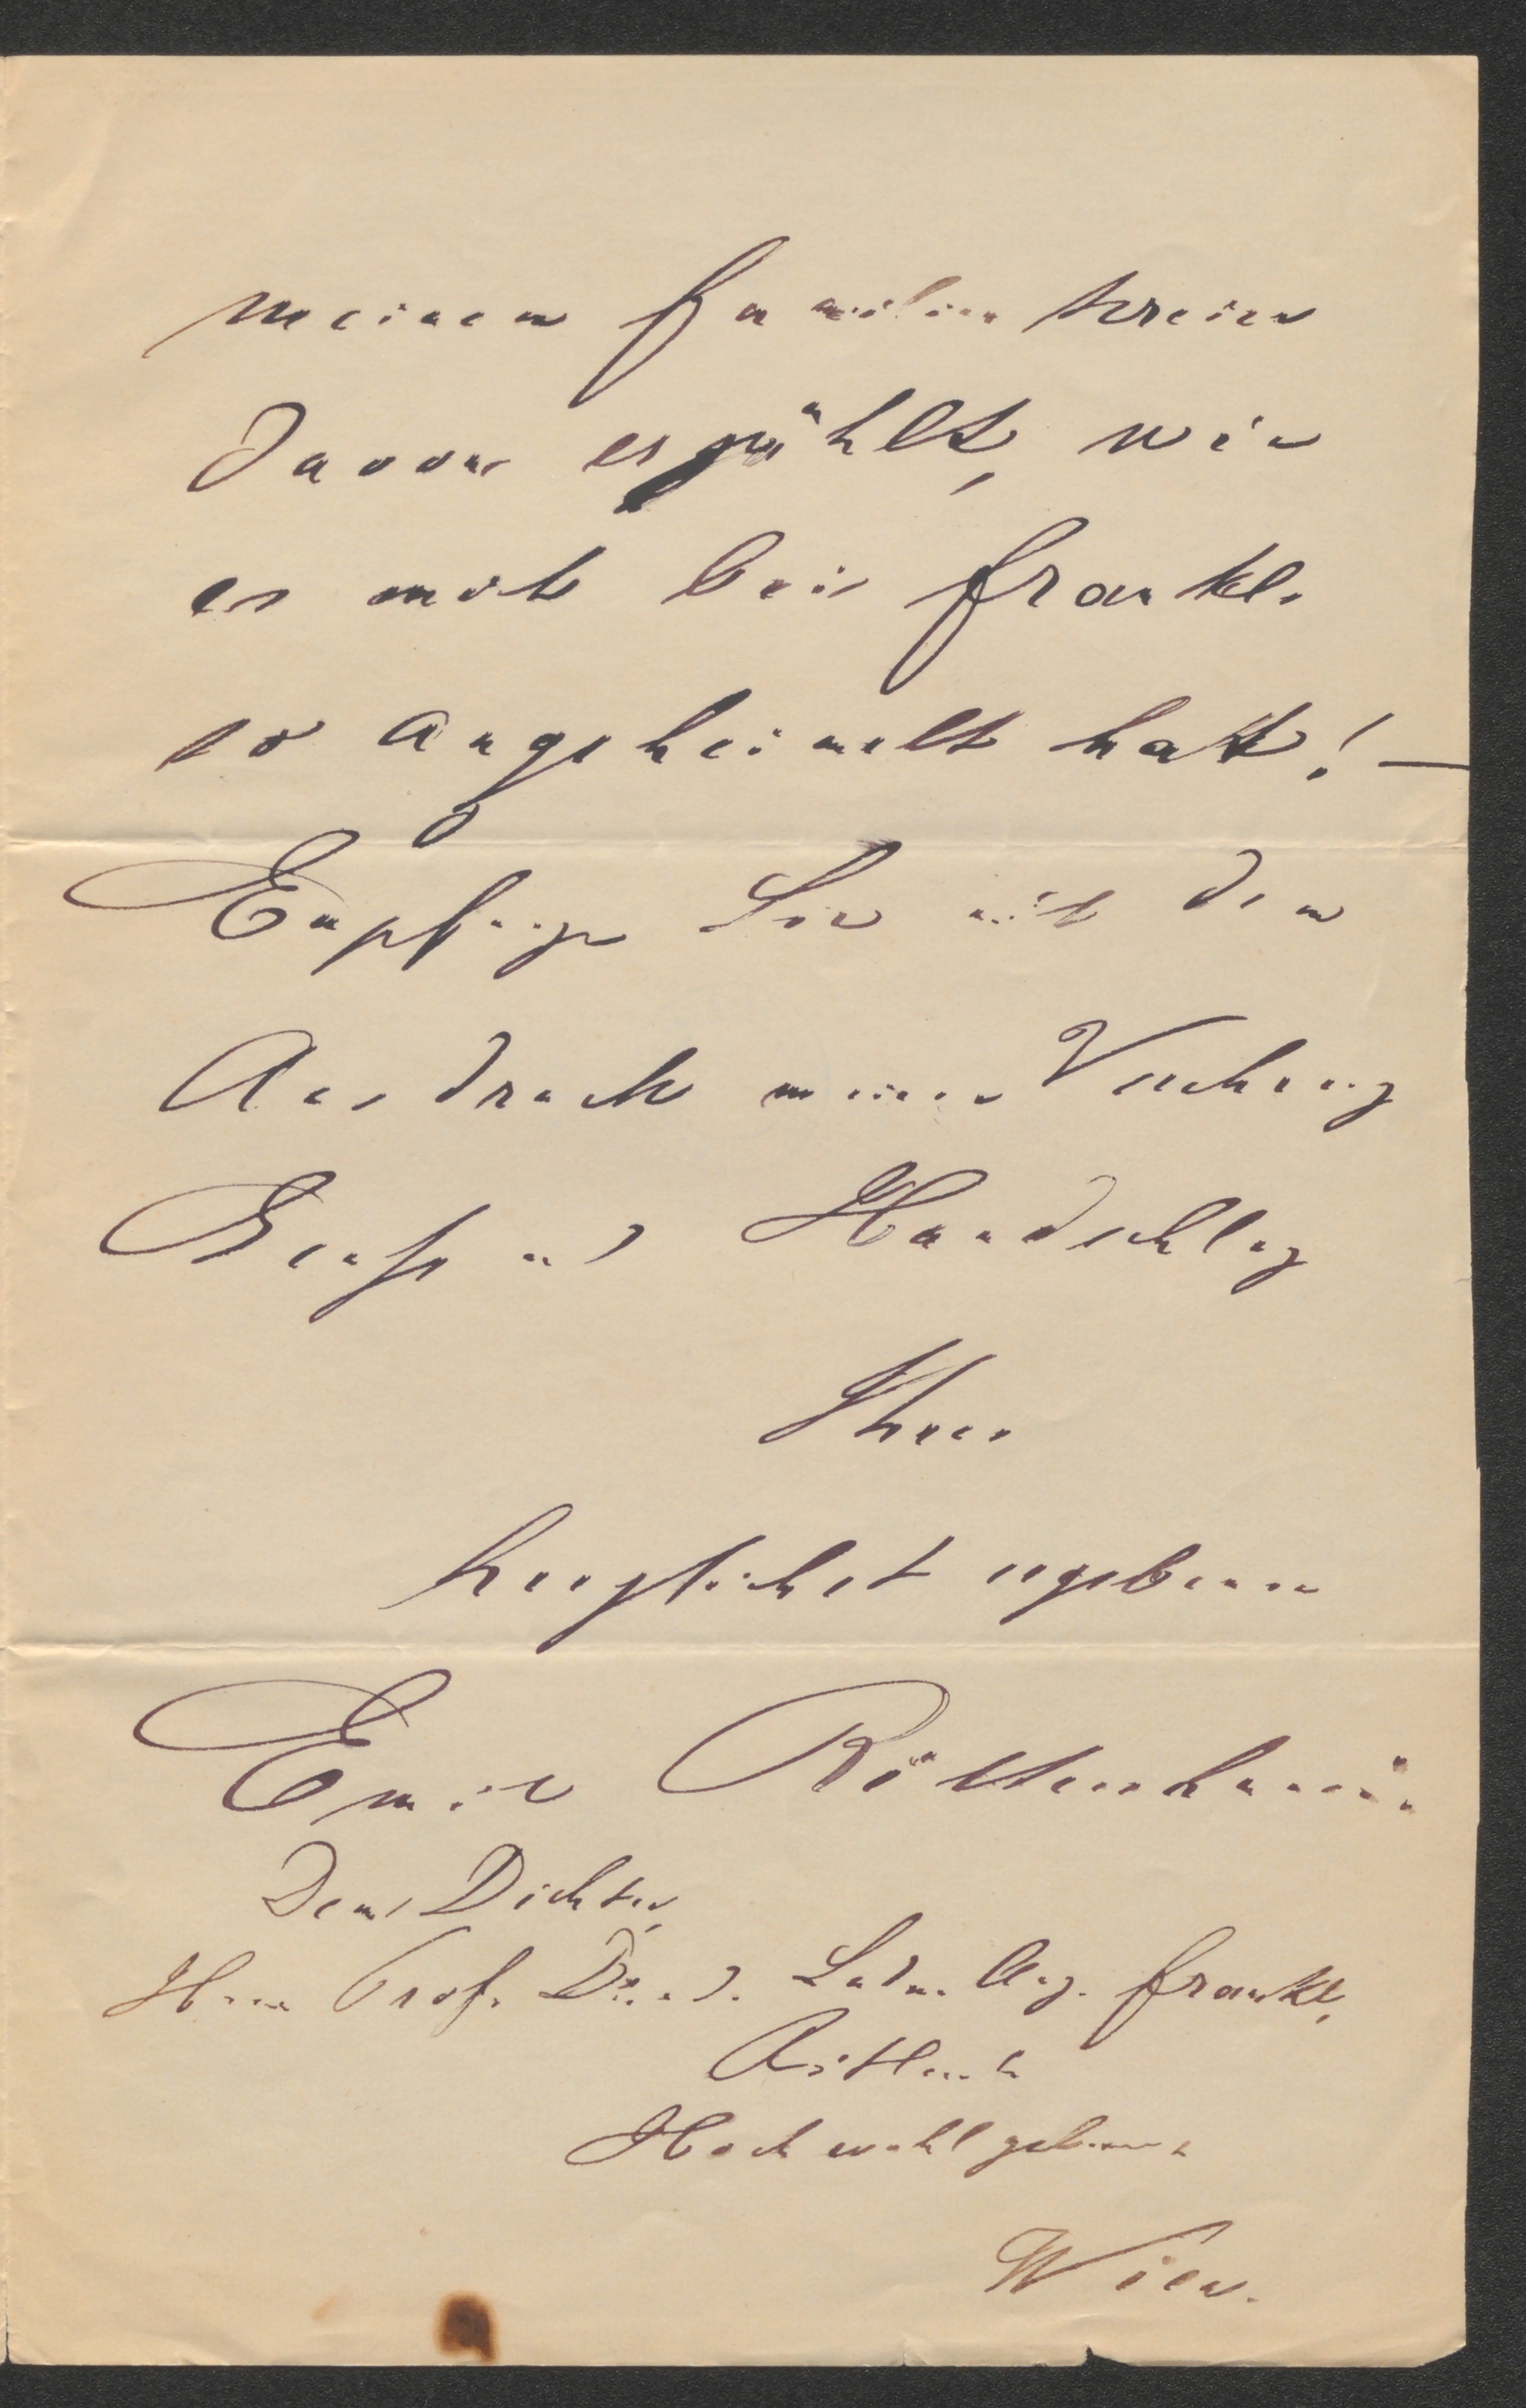 meinem Familienkreise
davon erzählt, wie
es mich bei Frankls
so angeheimelt hat! —
Empfangen Sie mit dem
Ausdruck meiner Verehrung
Gruß und Handschlag
Ihres
herzlichst ergebenen
Emil
Dem Dichter,
Herrn Prof. Dr. Ludw. Aug. Frankl,
Hochwohlgeboren
Wien.